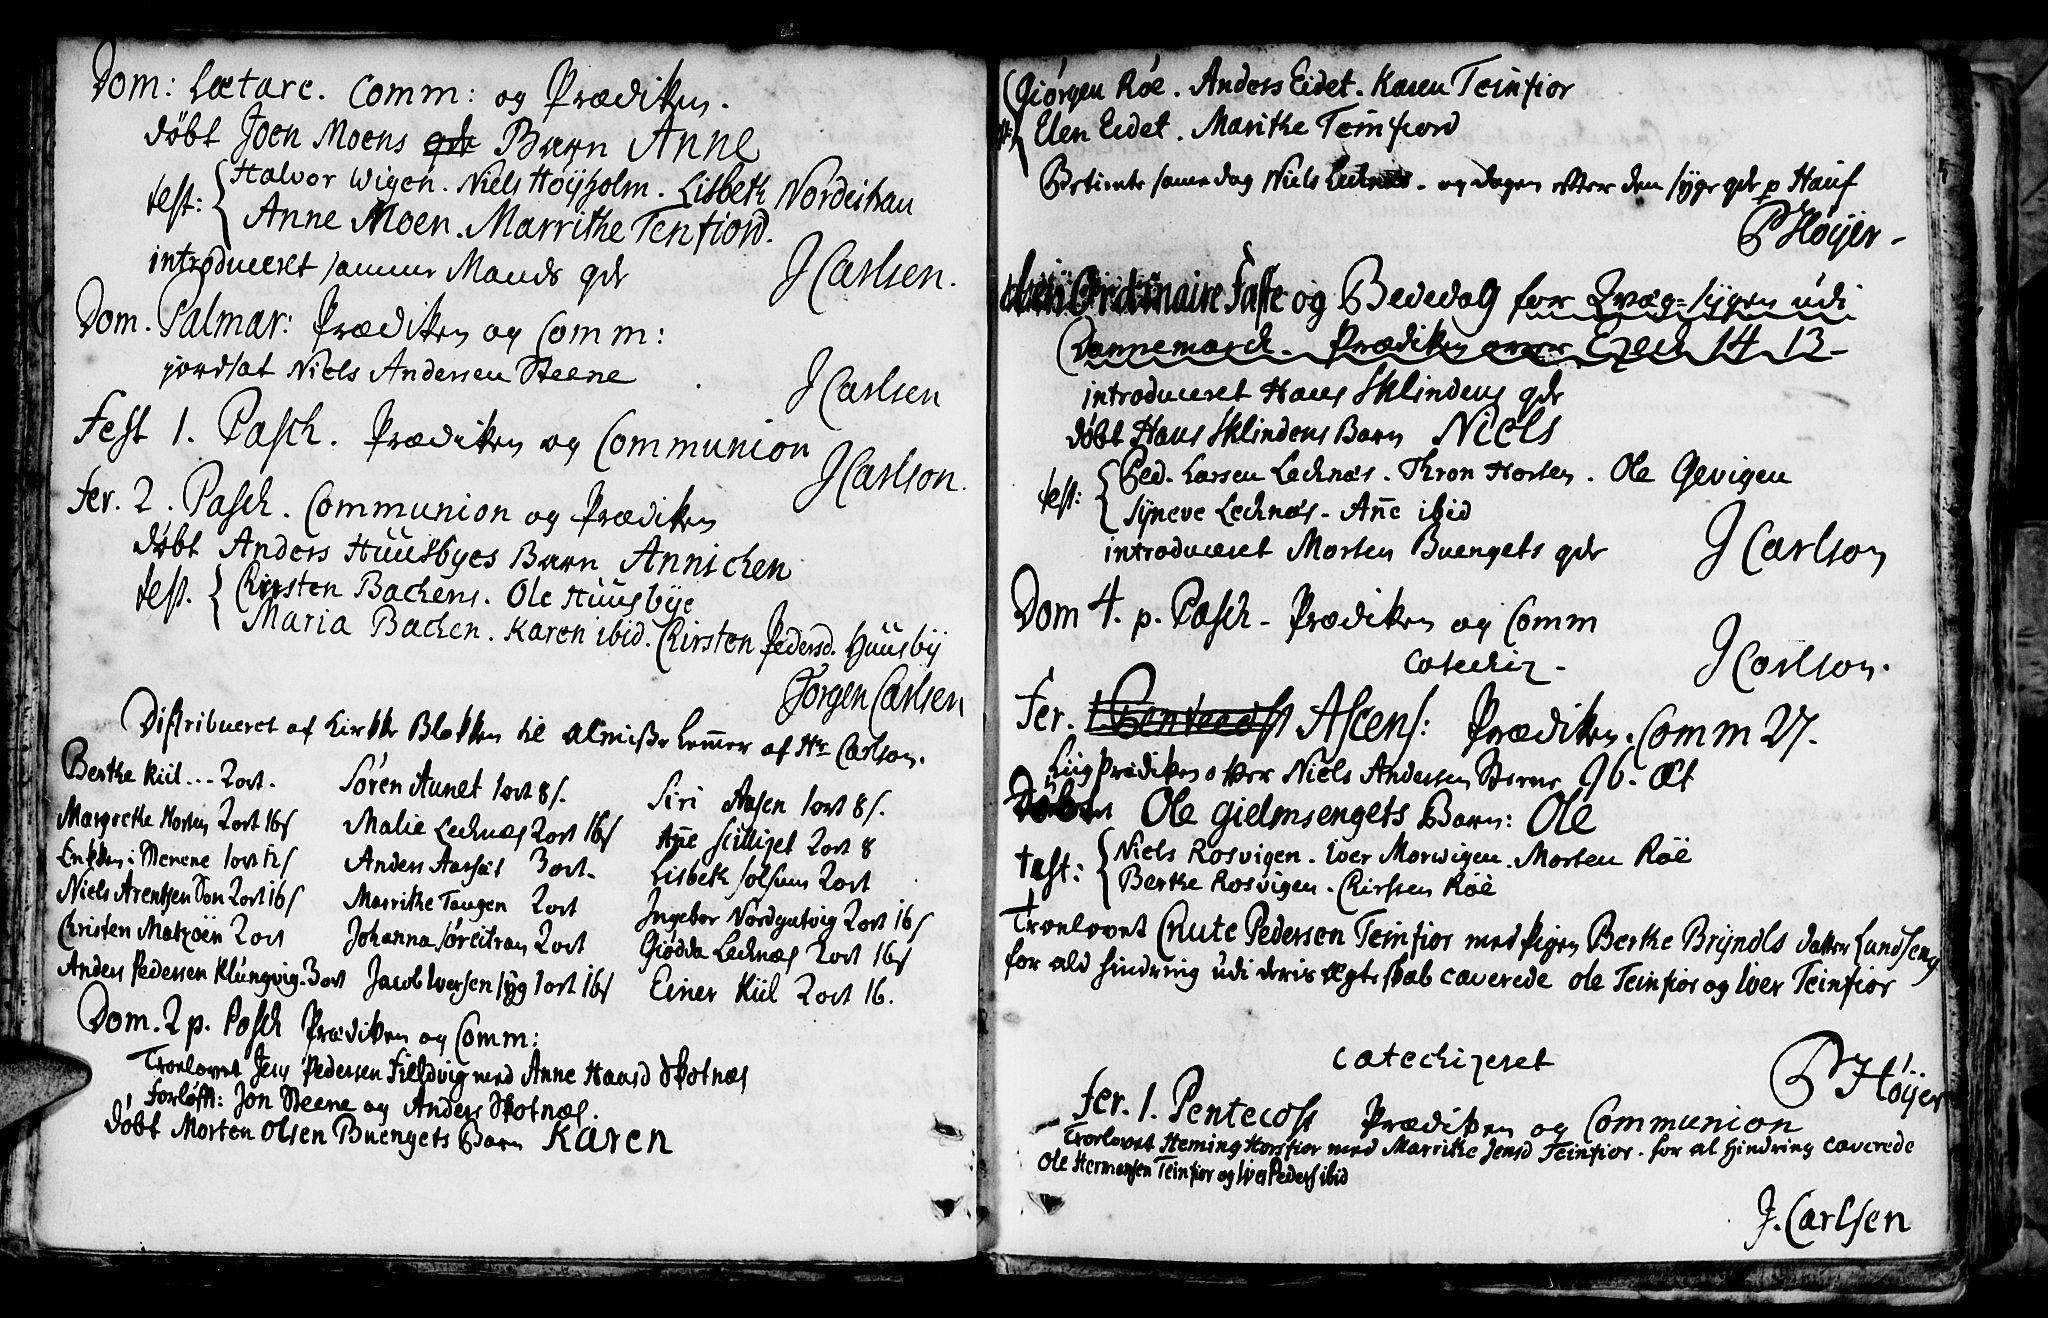 Dom: Lætare. Comm: og Prædiken.
døbt Joen Moens Barn Anne
test: Halvor Wigen. Niels Høÿholm. Lisbeth Nordeihau
Anne Moen. Marrithe Tenfiord.
introduceret samme Mands qde
J Carlsen.
Dom. Palmar: Prædiken og Comm:
jordsat Niels Andersen Steene
J Carlsen
Fest 1. Pasch. Prædiken og Communion
J Carlson.
Fer. 2. Pasch. Communion og Prædiken
døbt Anders Huusbyes Barn Annichen
test. Christen Bachens. Ole Huusbÿe
Maria Bachen. Karen ibid. Chirsten Pedersd. Huusbÿ
Jørgen Carlsen
Distribueret af Kirke Blokken til Almisse Lemmer af Hr Carlson.
Berthe Kiil --- 2 ort. Søren Aunet 1 ort 8 s. Siri Aasen 1 ort 8 s.
Margrethe Horten 2 ort 16 s Malie Lechnæs 2 ort 16 s Añe 2 ort 8
Enken i Stenene 1 ort 12 s Anders 3 ort. Lisbeth Solsem 2 ort
Niels Arentsen Søn 2 ort 16 s Marrithe Tangen 2 ort Ingebor 2 ort 16 s
Christen Matzøen 2 ort Johanna Sørcitran 2 ort Giødda Lechnæs 2 ort 16 s
Anders Pedersen Klungvig. 3 ort Jacob Iversen syg 1 ort 16 s Einer Kiil 2 ort 16.
Dom. 2 p. Pasch Prædiken og Comm:
Troelovet Jens Pedersen Fieldvig med Anne Hansd Skotnæs
Forløfft: Jon Steene og Anders Skotnæs.
døbt Morten Olsen Buengets Barn Karen
Giörgen Röe. Anders Eidet. Karen Teinfior
test: Elen Eidet. Marithe Teinfiord
Betient same dag Niels Lechnæs. og dagen efter den syge qde p Hauf
P Høÿer-
Ordinaire Faste og Bededag for Qvæg-sygen udi
Dannemarck. Prædiken over Ezech 14 13-
introduceret Hans Sklindens qde
døbt Hans Sklindens Barn Niels
test: Ped. Larsen Lechnæs. Thron Horten. Ole Gevigen
Sÿneve Lechnæs. Añe ibid
introduceret Morten Buengets qde
J Carlson
Dom 4. p. Pasch - Prædiken og Comm
catechiz -
J Carlson.
Fer. 1 Pentecost Ascens: Prædiken. Comm 27.
Liigprædiken over Niels Andersen Steene 96. Æt
Døbt Ole Gielmsengets Barn: Ole
test: Niels Rosvigen. Iver Morwigen. Morten Röe
Berthe Rosvigen. Chirsten Röe
Troelovet Cnute Pedersen Teinfior med Pigen Berthe Brÿnels datter Lundseng
for ald hindring udi deris Ægteskab caverede Ole Teinfior og Iver Teinfior
catechizeret
P Høÿer
Fer. 1. Pentecost Prædiken og Communion
Troelovet Heming Horsfior med Marrithe Jensd Teinfior. for al hindring caverede
Ole Hermansen Teinfior og Iver Peders ibid
J. Carlsen